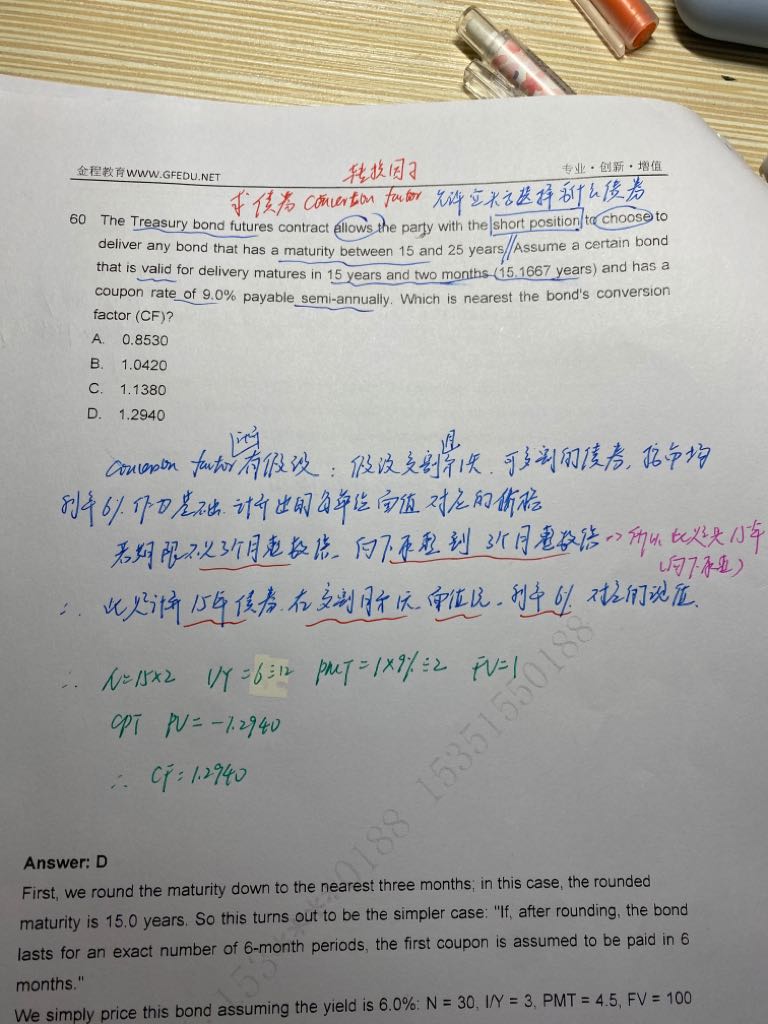 金程教育WWW.GFEDU.NET
专业·创新·增值
转换因子
求债券 conversion factor 允许空头方选择交割什么债券
60 The Treasury bond futures contract allows the party with the short position to choose to
deliver any bond that has a maturity between 15 and 25 years//Assume a certain bond
that is valid for delivery matures in 15 years and two months (15.1667 years) and has a
coupon rate of 9.0% payable semi-annually. Which is nearest the bond's conversion
factor (CF)?
A. 0.8530
B. 1.0420
C. 1.1380
D. 1.2940
conversion factor 有假设:假设交割月 天 可交割的债券, 市场
利率6% 作为基础 计算出的每单位面值对应的价格
若期限不以3个月整数倍, 向下取整到 3个月整数倍 -> 所以 此题是15年
(向下取整)
∴ 此题计算 15年债券 在交割月 天 面值 利率6% 对应的现值.
∴ N=15×2 I/Y=6÷12 PMT=1×9%÷2 FV=1
CPT PV=-1.2940
∴ CF=1.2940
153****0188 15351550188
Answer: D
First, we round the maturity down to the nearest three months; in this case, the rounded
maturity is 15.0 years. So this turns out to be the simpler case: "If, after rounding, the bond
lasts for an exact number of 6-month periods, the first coupon is assumed to be paid in 6
months."
We simply price this bond assuming the yield is 6.0%: N = 30, I/Y = 3, PMT = 4.5, FV = 100